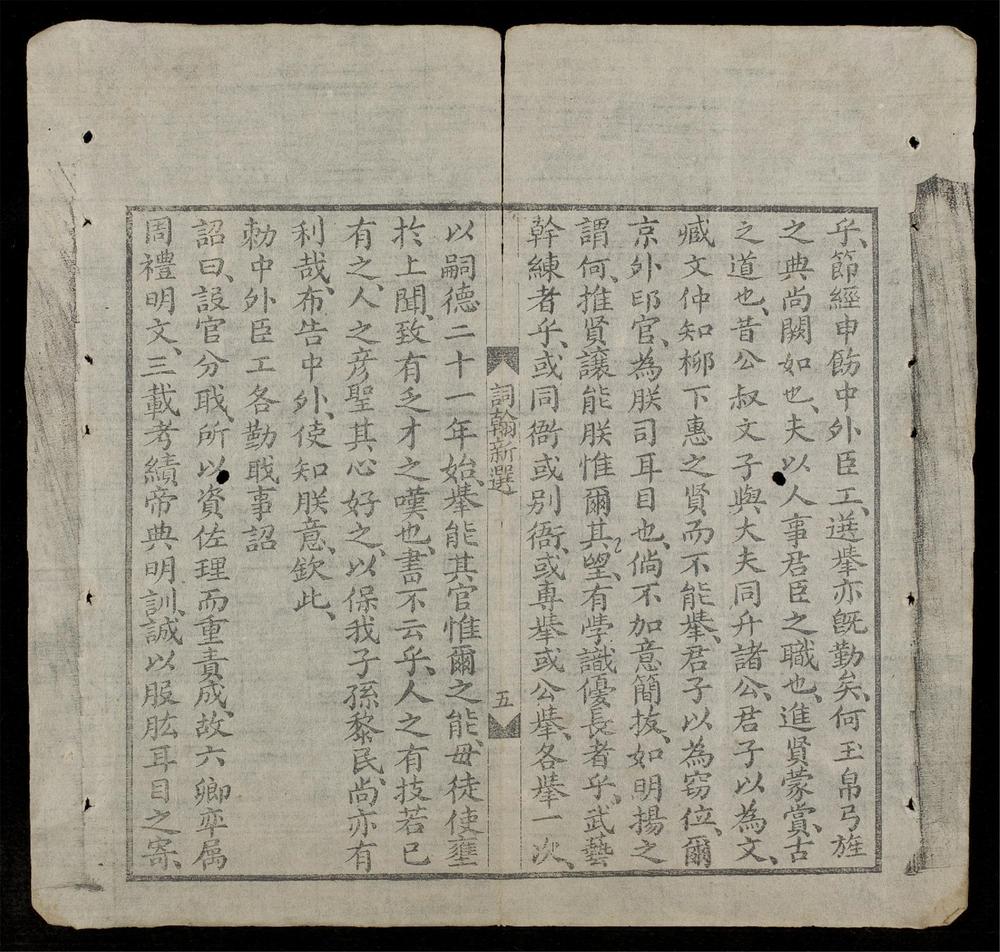 乎、節經申飭中外臣工、選舉亦既勤矣、何玉帛弓旌
之典尚闕如也、夫以人事君臣之職也、進賢蒙賞、古
之道也、昔公叔文子與大夫同升諸公、君子以為文、
臧文仲知柳下惠之賢而不能舉、君子以為窃位、爾
京外印官、為朕司耳目也、倘不加意簡拔、如明揚之
謂何、推賢讓能朕惟爾其望、有学識優長者乎、武藝
幹練者乎、或同衙或别衙、或專舉或公舉、各舉一次、
詞翰新選
五
以嗣德二十一年始、舉能其官惟爾之能、毋徒使壅
於上聞、致有乏才之嘆也、書不云乎、人之有技若已
有之、人之彦聖其心好之、以保我子孫黎民、尚亦有
利哉、布告中外、使知朕意、欽此、
勅中外臣工各勤職事詔
詔曰、設官分職、所以資佐理而重責成、故六卿率属
周禮明文、三載考績帝典明訓、誠以股肱耳目之寄、